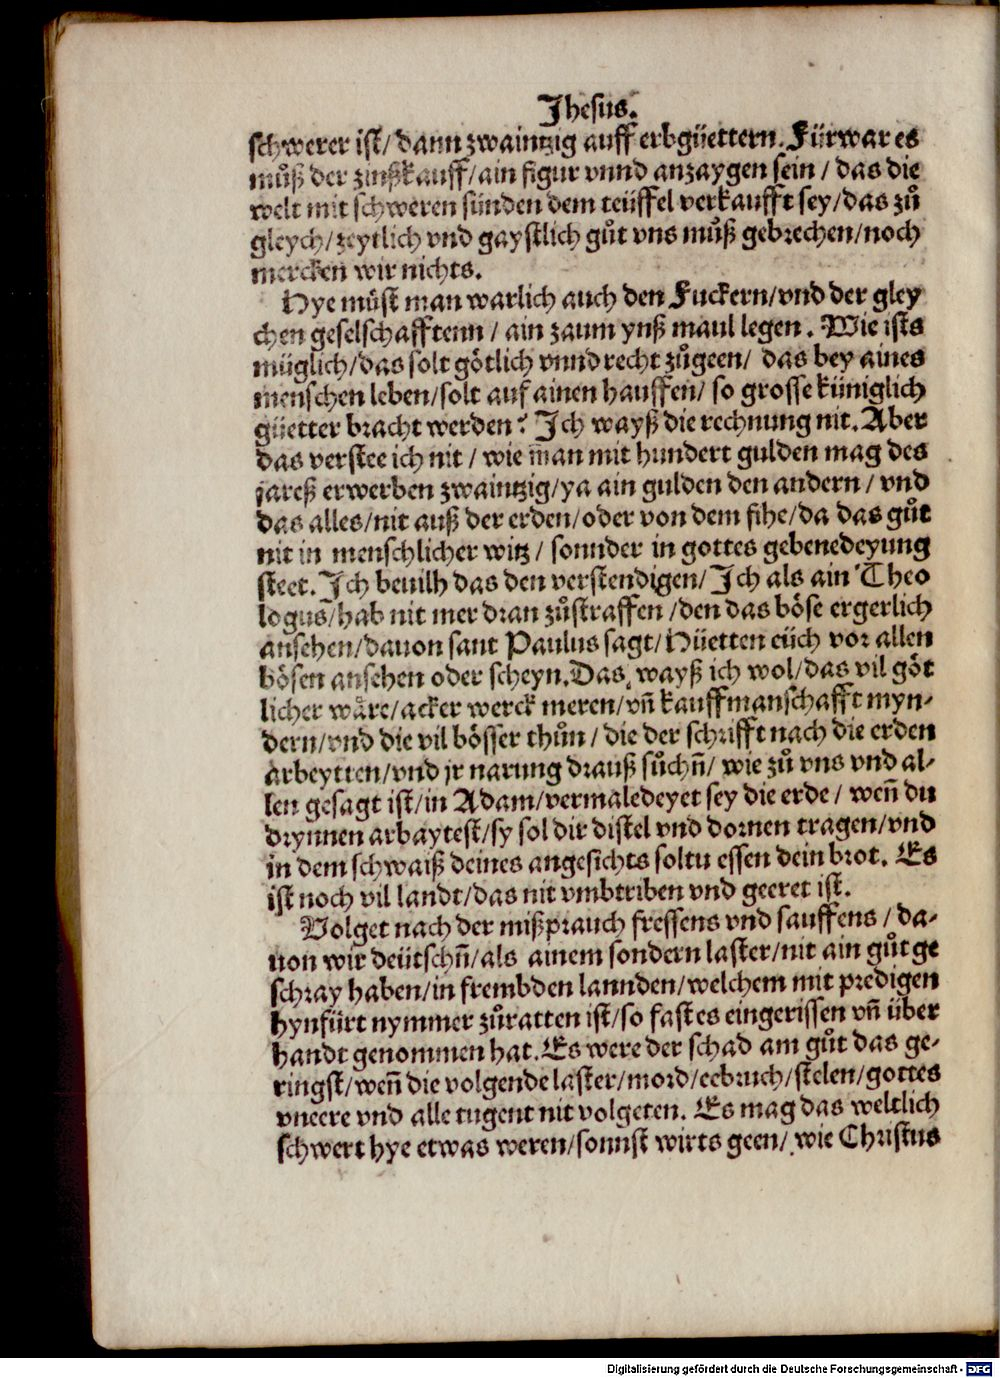 Jhesus.
schwerer ist/ dann zwaintzig auff erbgüettern. Fürwar es
muͦß der zinßkauff/ ain figur vnnd anzaygen sein / das die
welt mit schweren sünden dem teüffel verkaufft sey/ das zuͦ
gleych/ zeytlich vnd gaystlich guͦt vns muͦß gebrechen/ noch
mercken wir nichts.
Hye müst man warlich auch den Fuckern/ vnd der gley
chen geselschafftenn / ain zaum ynß maul legen. Wie ists
müglich/ das solt götlich vnnd recht zuͦgeen/ das bey aines
menschen leben/ solt auf ainen hauffen/ so grosse küniglich
güetter bracht werden? Ich wayß die rechnung nit. Aber
das verstee ich nit / wie man mit hundert gulden mag des
jareß erwerben zwaintzig/ ya ain gulden den andern / vnd
das alles/ nit auß der erden/ oder von dem fihe/ da das guͦt
nit in menschlicher witz / sonnder in gottes gebenedeyung
steet. Ich beuilh das den verstendigen/ Ich als ain Theo
logus/ hab nit mer dran zuͦstraffen / den das böse ergerlich
ansehen/ dauon sant Paulus sagt/ Hüetten eüch vor allen
bösen ansehen oder scheyn. Das wayß ich wol/ das vil göt
licher waͤre/ acker werck meren/ vñ kauffmanschafft myn-
dern/ vnd die vil bösser thuͦn / die der schrifft nach die erden
arbeytten/ vnd jr narung drauß suͦchñ/ wie zuͦ vns vnd al-
len gesagt ist/ in Adam/ vermaledeyet sey die erde / weñ du
drynnen arbaytest/ sy sol dir distel vnd dornen tragen/ vnd
in dem schwaiß deines angesichts soltu essen dein brot. Es
ist noch vil landt/ das nit vmbtriben vnd geeret ist.
Volget nach der mißprauch fressens vnd sauffens / da-
uon wir deütschñ/ als ainem sondern laster/ nit ain guͦt ge
schray haben/ in frembden lannden/ welchem mit predigen
hynfürt nymmer zuͦratten ist/ so fast es eingerissen vñ über
handt genommen hat. Es were der schad am guͦt das ge-
ringst/ weñ die volgende laster/ mord/ eebruch/ stelen/ gottes
vneere vnd alle tugent nit volgeten. Es mag das weltlich
schwert hye etwas weren/ sonnst wirts geen/ wie Christus
Digitalisierung gefördert durch die Deutsche Forschungsgemeinschaft - DFG